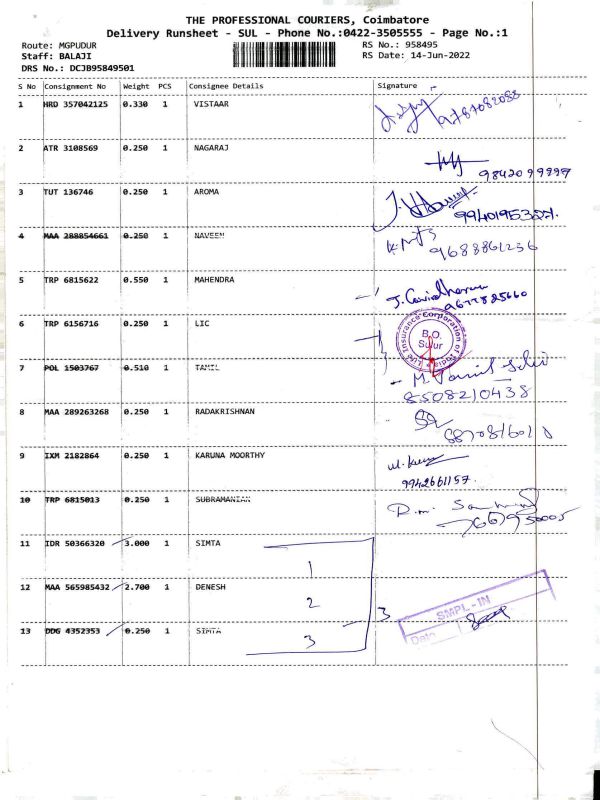 THE PROFESSIONAL COURIERS, Coimbatore
Delivery Runsheet - SUL - Phone No.:0422-3505555 - Page No.:1
Route: MGPUDUR
RS No.: 958495
Staff: BALAJI
RS Date: 14-Jun-2022
DRS No.: DCJB95849501
S No Consignment No Weight PCS Consignee Details Signature
1 HRD 357042125 0.330 1 VISTAAR
9787082088
2 ATR 3108569 0.250 1 NAGARAJ
9842099899
3 TUT 136746 0.250 1 AROMA
4 MAA 288854661 0.250 1 NAVEEN
9688861236
5 TRP 6815622 0.550 1 MAHENDRA
6 TRP 6156716 0.250 1 LIC
Life Insurance Corporation of India
B.O.
Sulur
7 POL 1503767 0.510 1 TAMIL
8508210438
8 MAA 289263268 0.250 1 RADAKRISHNAN
9 IXM 2182864 0.250 1 KARUNA MOORTHY
9942661157
10 TRP 6815013 0.250 1 SUBRAMANIAN
11 IDR 50366320 3.000 1 SIMTA
1
12 MAA 565985432 2.700 1 DENESH
2
3
SMPL-IN
Date
13 DDG 4352353 0.250 1 SIMTA
3